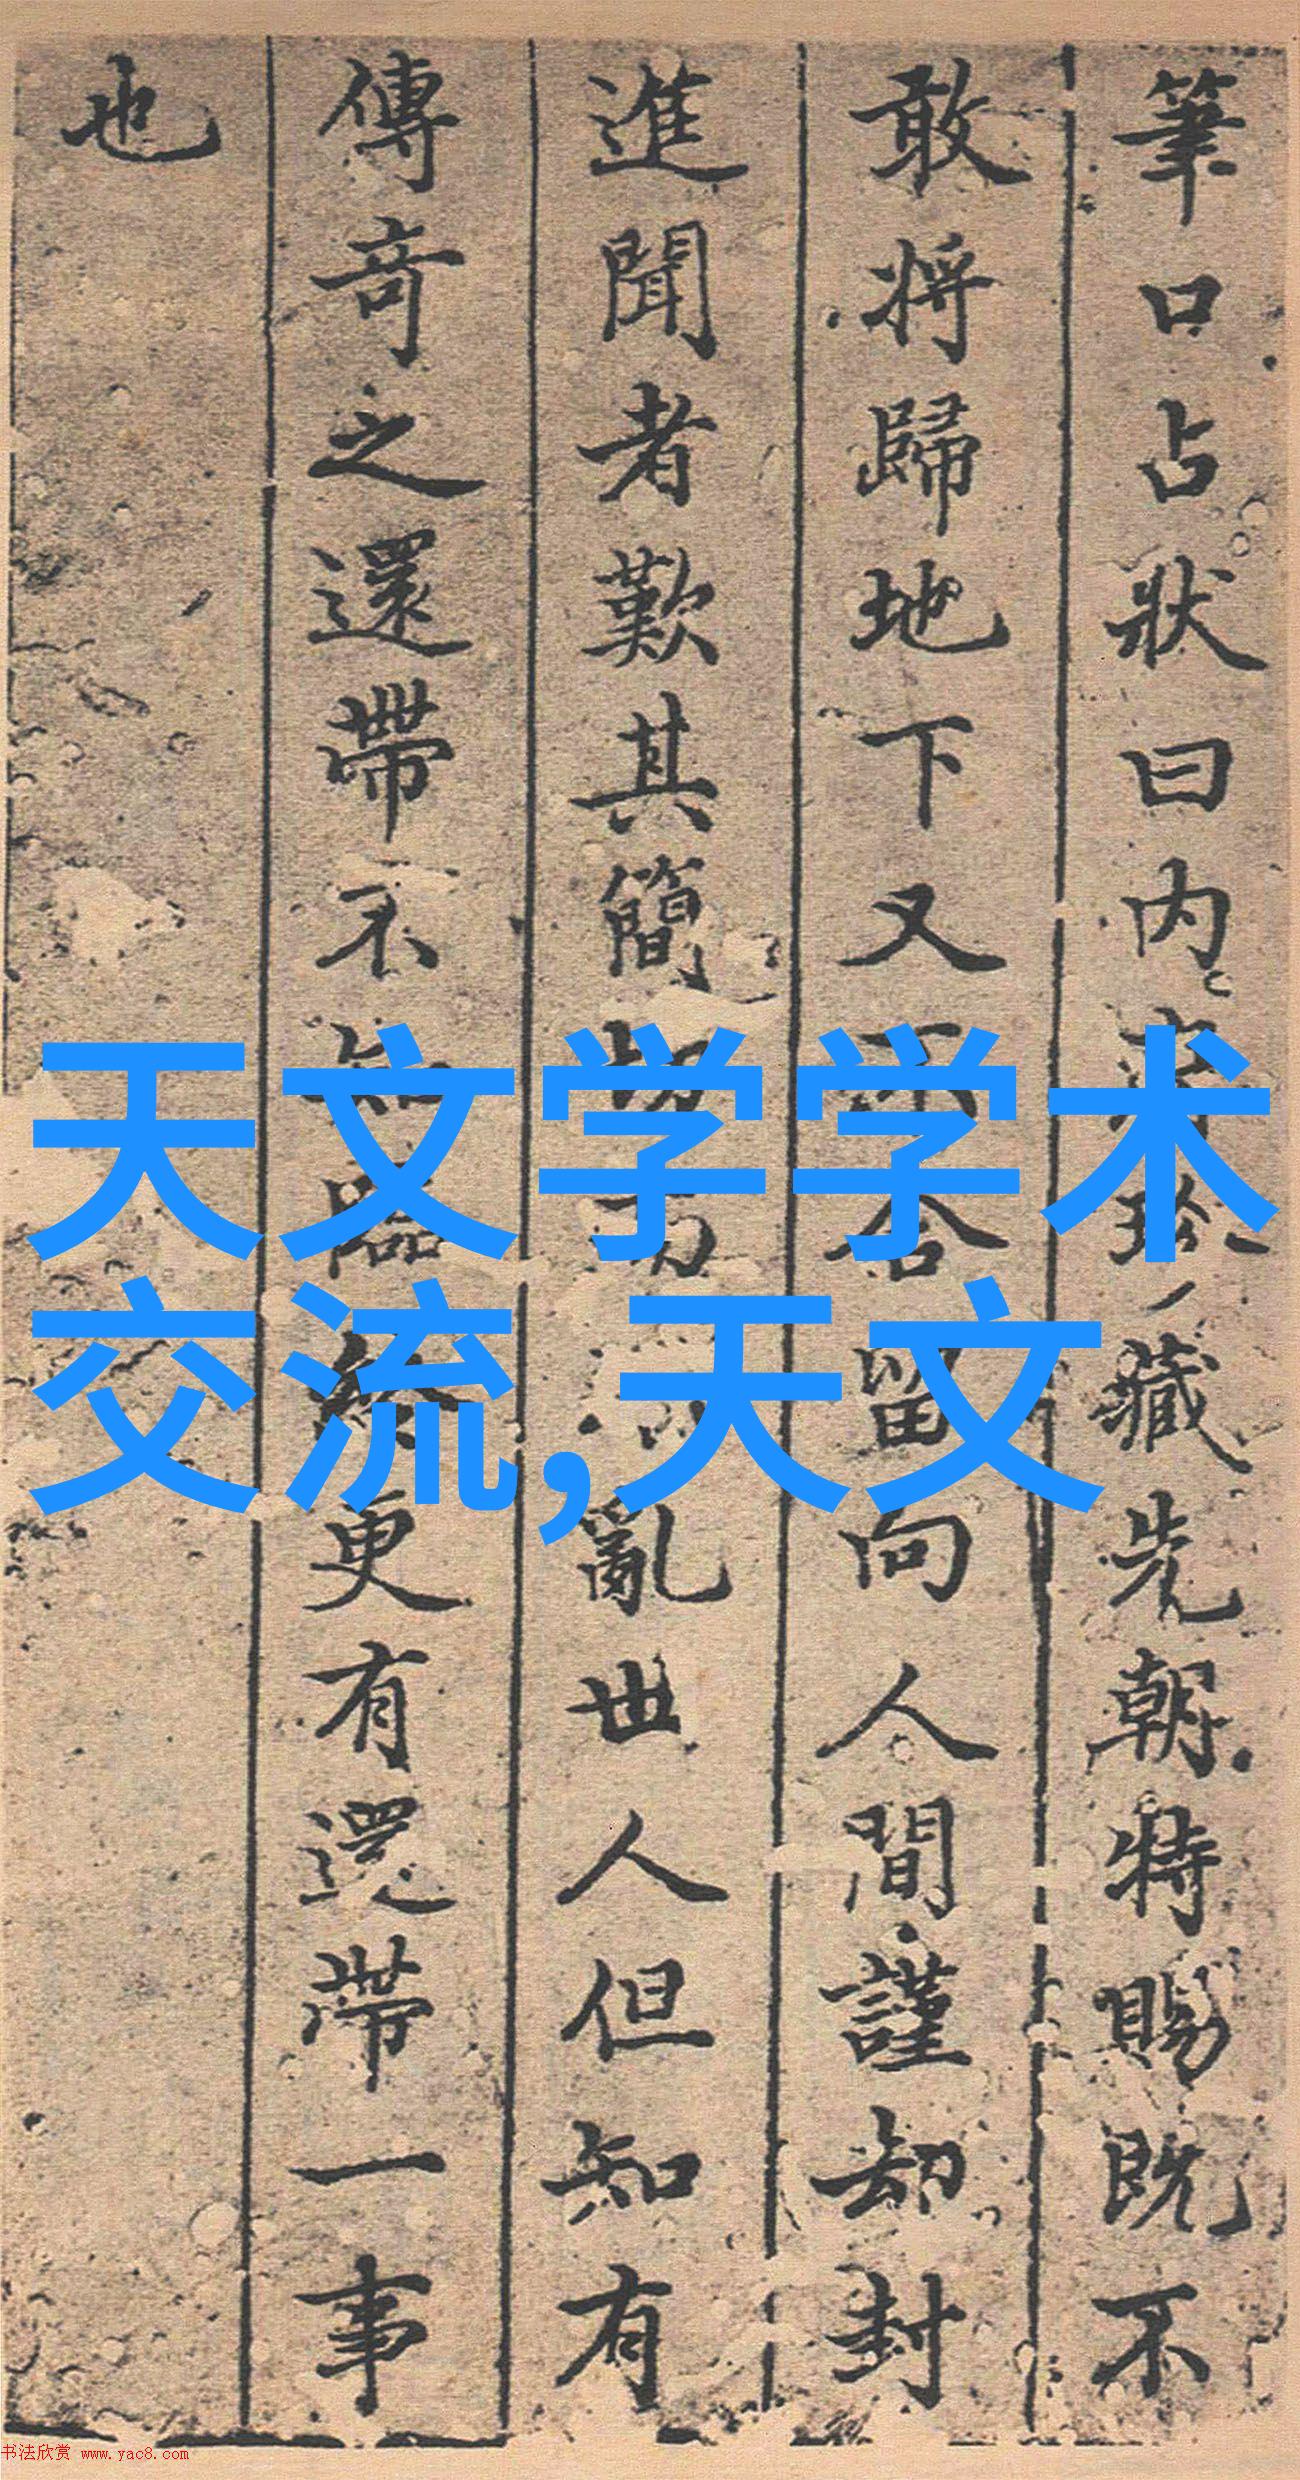 筆口占狀曰内
藏先朝特賜既不
敢将歸地下又不
留向人間謹却封
進聞者歎其簡
亂世人但知有
傳奇之還帶不
更有還帶一事
也
天文学学术
交流,天文
书法欣赏 www.yac8.com